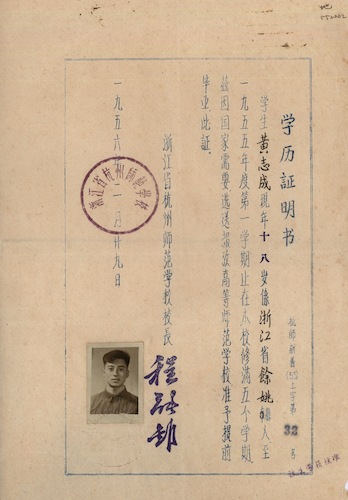 学历証明书
杭师 字第 32 号
学生黄志成現年十八岁係浙江省餘姚 人至
一九五五年度第一学期止在本校修滿五个学期
兹因国家需要选送报放高等师范学校准予提前
毕业此証.
浙江省杭州师范学校校长
一九五六年 月廿九日
浙江省杭州师範学校